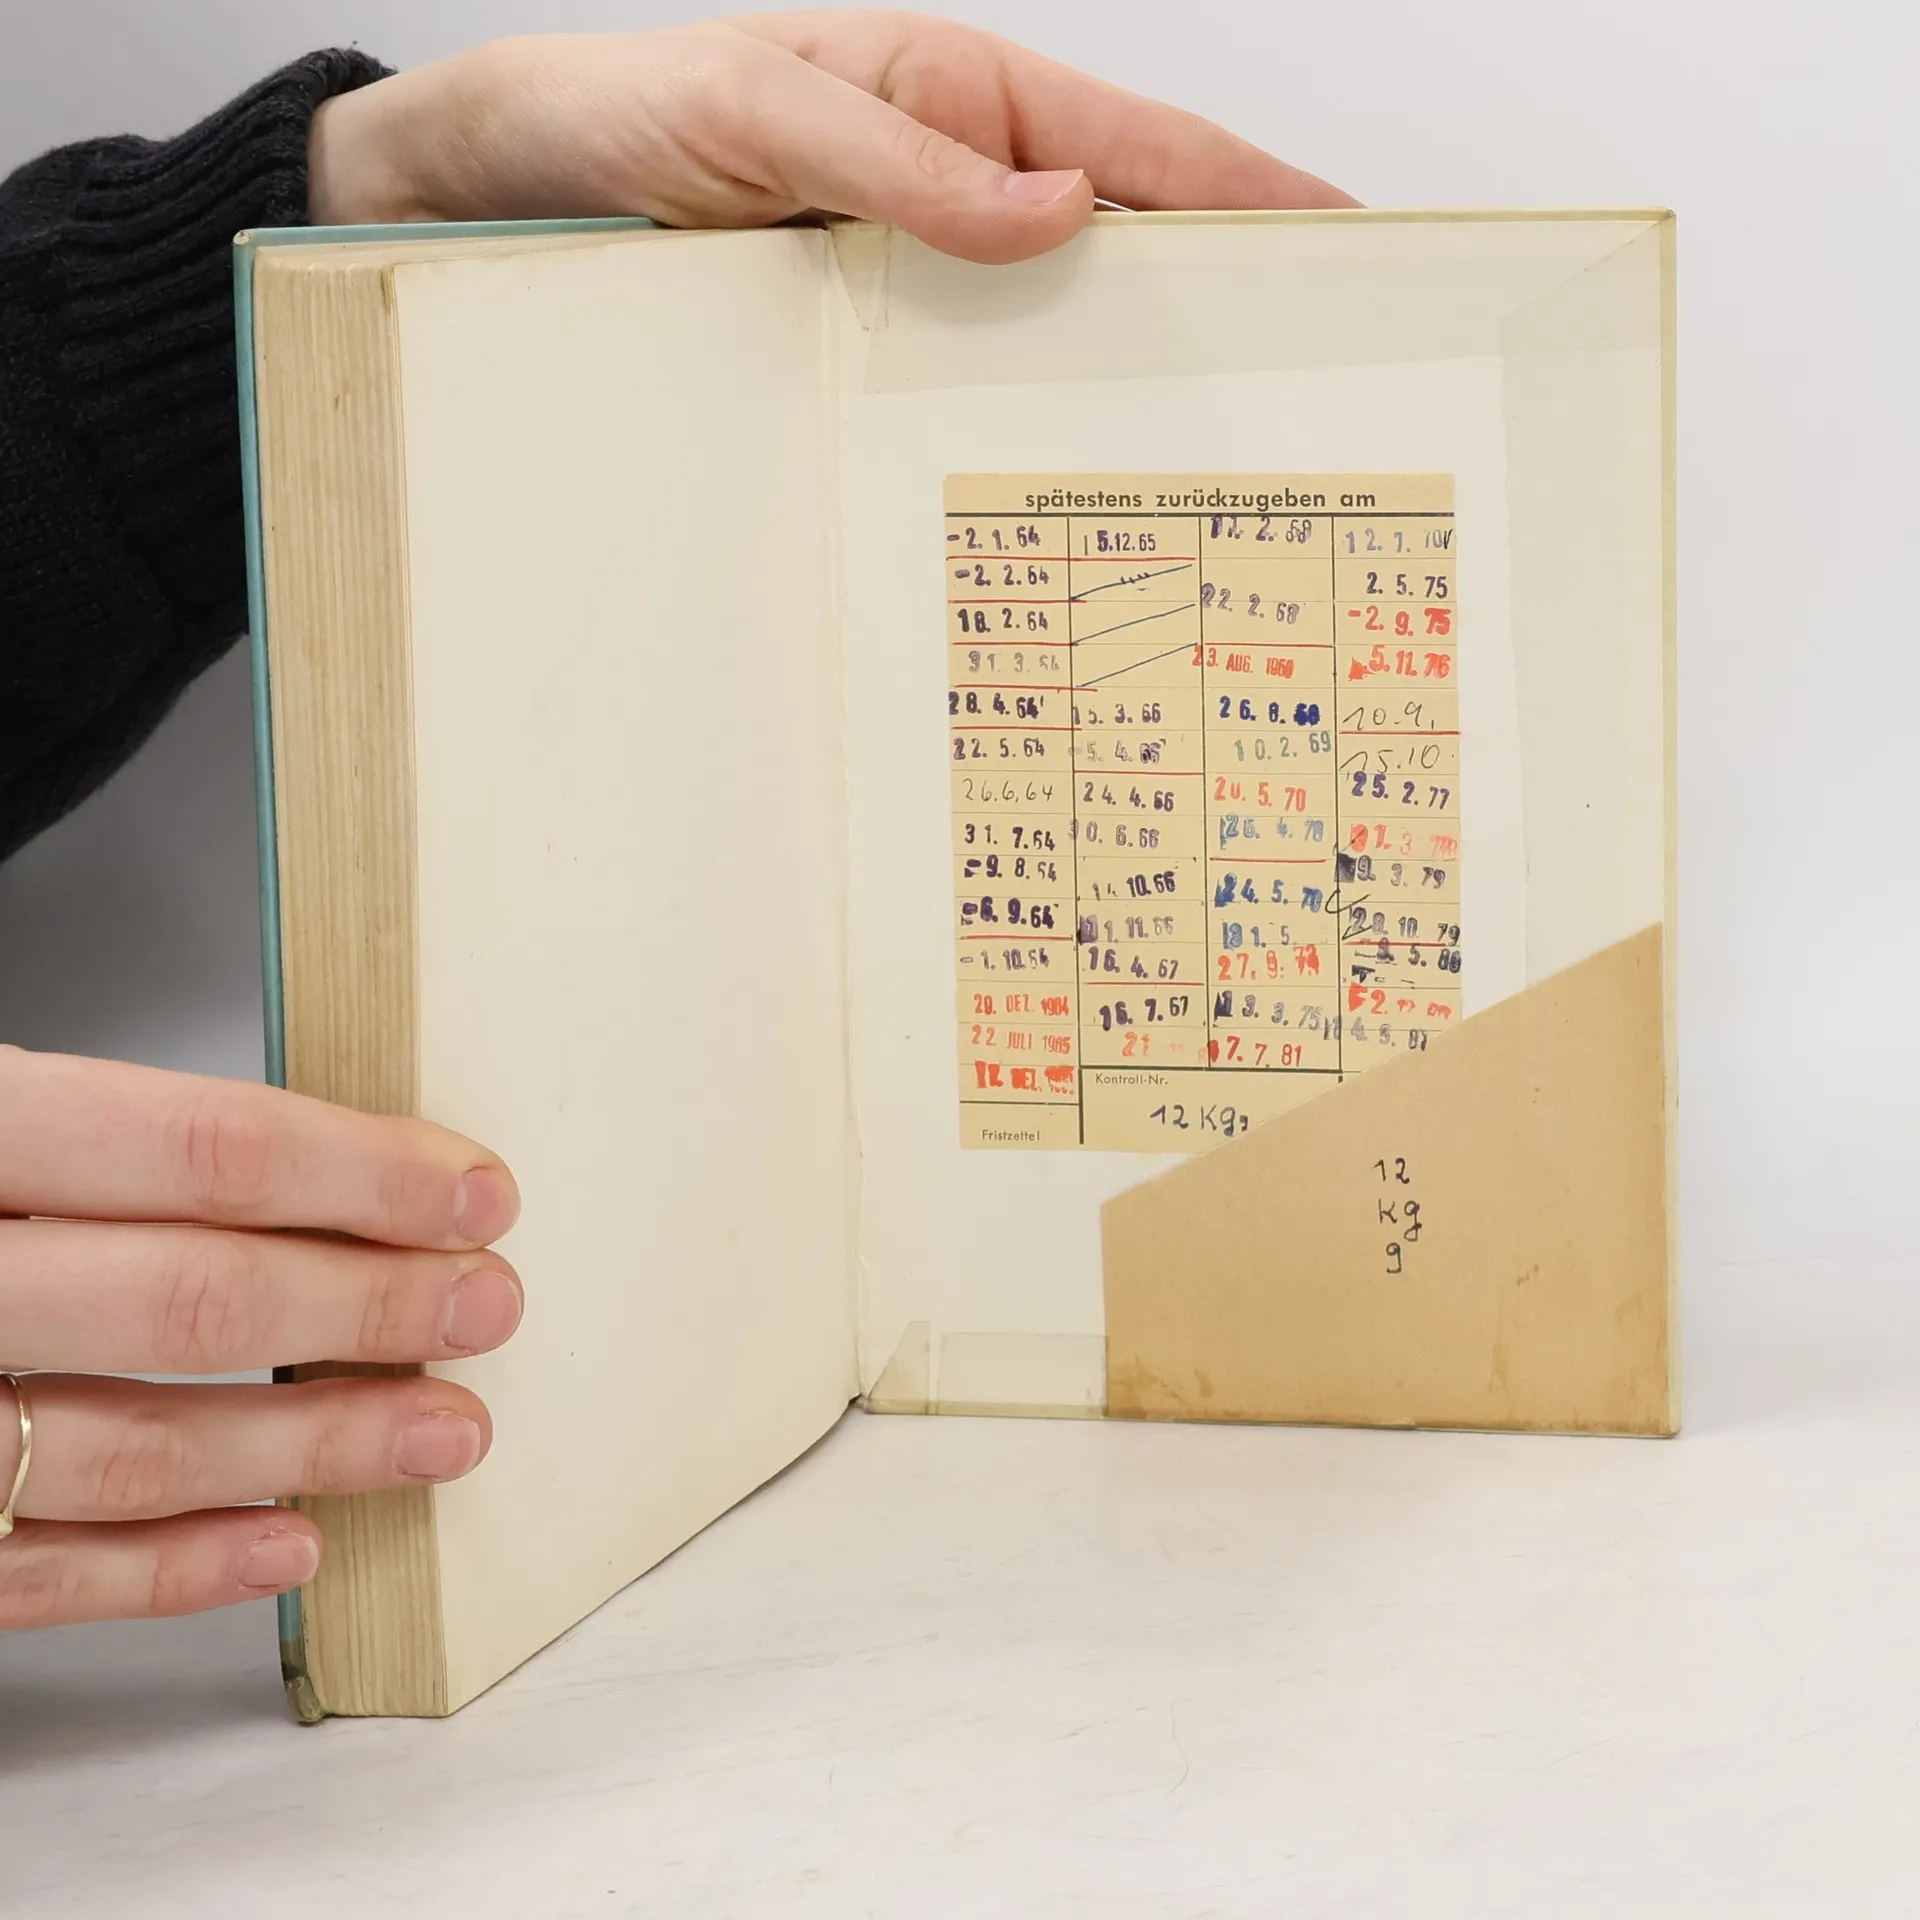 spätestens zurückzugeben am
-2. 1. 64
-2. 2. 64
18. 2. 64
31. 3. 64
28. 4. 64
22. 5. 64
26.6.64
31. 7. 64
-9. 8. 64
-6. 9. 64
-1. 10. 64
29. DEZ. 1964
22 JULI 1965
DEZ.
15.12.65
15. 3. 66
-5. 4. 66
24. 4. 66
30. 6. 66
10.66
11.66
16. 4. 67
16. 7. 67
21
2. 68
22. 2. 68
23. AUG. 1968
26. 8. 68
10. 2. 69
5. 70
26. 4. 70
24. 5. 70
31. 5.
27. 9. 73
13. 3. 75
17. 7. 81
12. 7. 70
2. 5. 75
-2. 9. 75
5. 11. 76
10.9.
15.10.
25. 2. 77
3
9. 3. 79
28. 10. 79
5. 80
2.
14. 5. 81
Kontroll-Nr.
12 Kg 9
Fristzettel
12
Kg
9